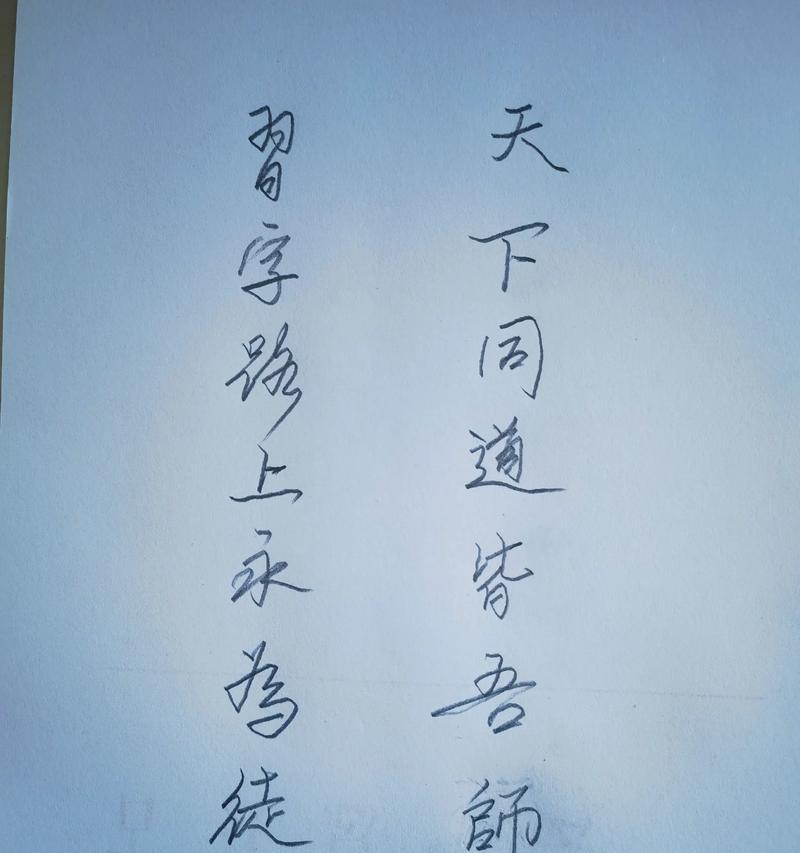 天下同道皆吾師
習字路上永為徒